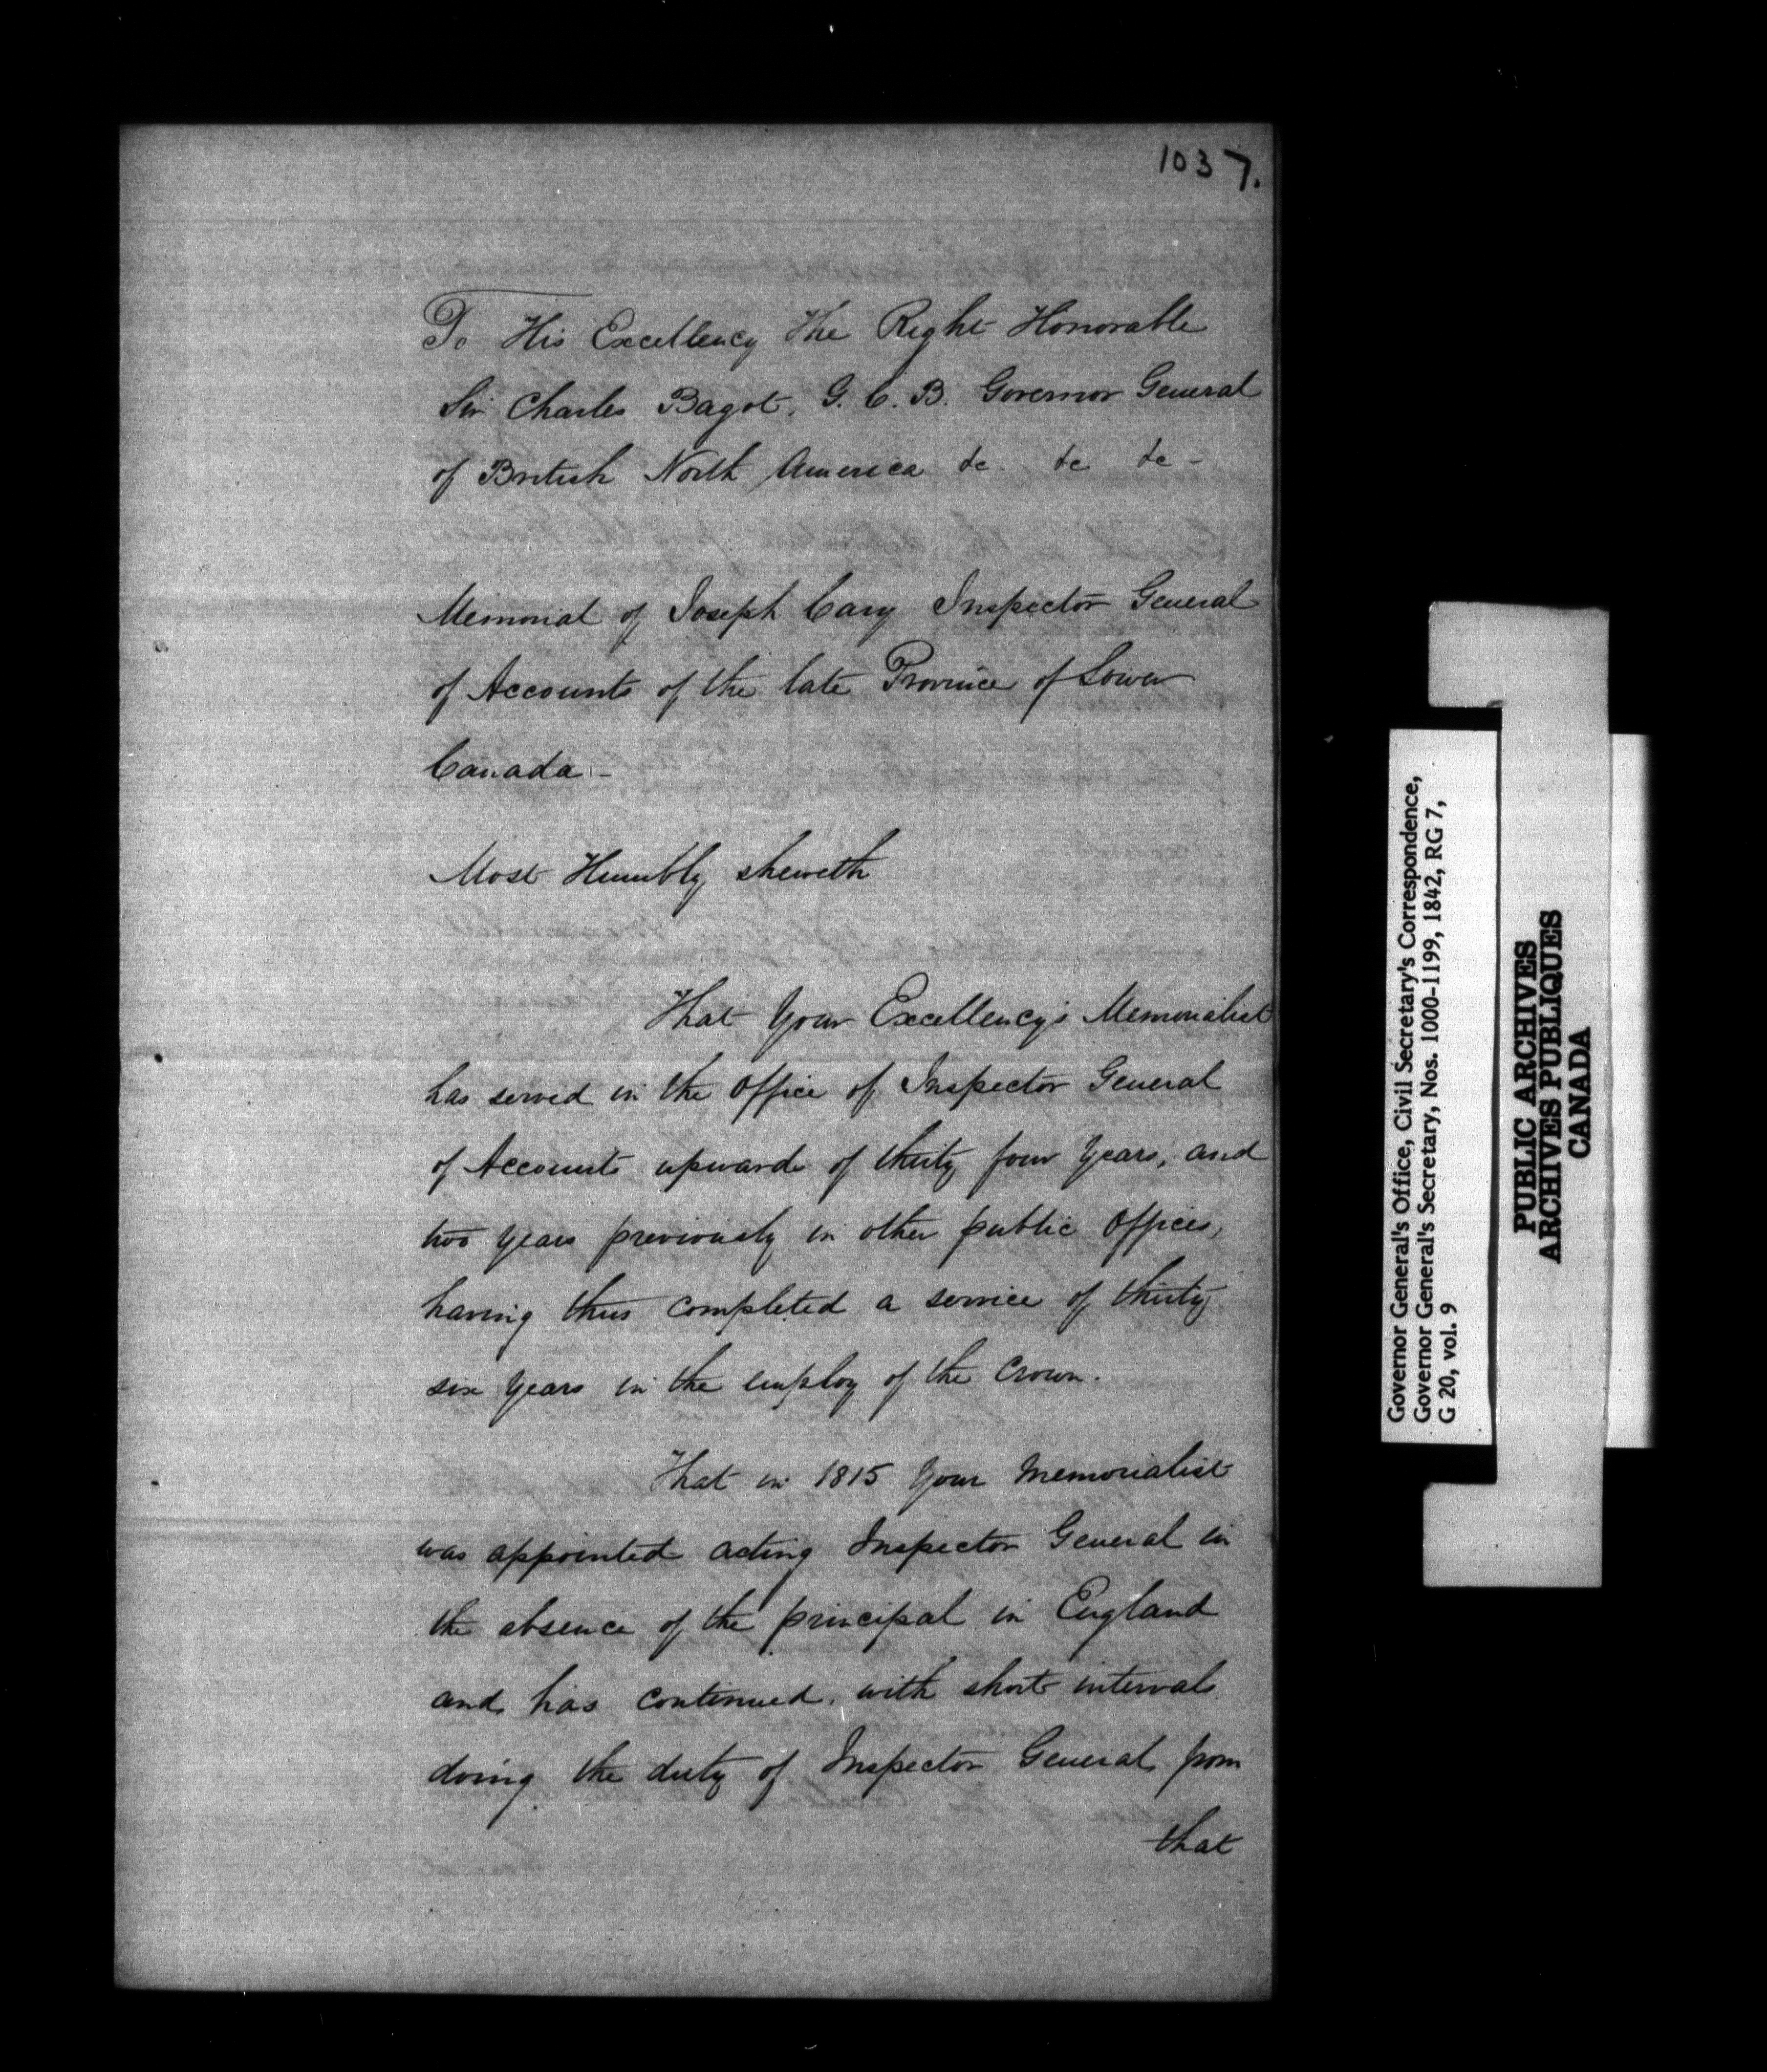 1037.
To His Excellency The Right Honorable
Sir Charles Bagot. G. C. B. Governor General
of British North America &c &c &c -
Memorial of Joseph Cary Inspector General
of Accounts of the late Province of Lower
Canada -
Most Humbly sheweth
That Your Excellency's Memorialist
has served in the Office of Inspector General
of Accounts upwards of thirty four Years, and
two Years previously in other public Offices,
having thus completed a service of thirty
six Years in the employ of the Crown.
That in 1815 Your Memorialist
was appointed acting Inspector General in
the absence of the principal in England
and has continued. with short intervals
doing the duty of Inspector General from
that
Governor General's Office, Civil Secretary's Correspondence,
Governor General's Secretary, Nos. 1000-1199, 1842, RG 7,
G 20, vol. 9
PUBLIC ARCHIVES
ARCHIVES PUBLIQUES
CANADA